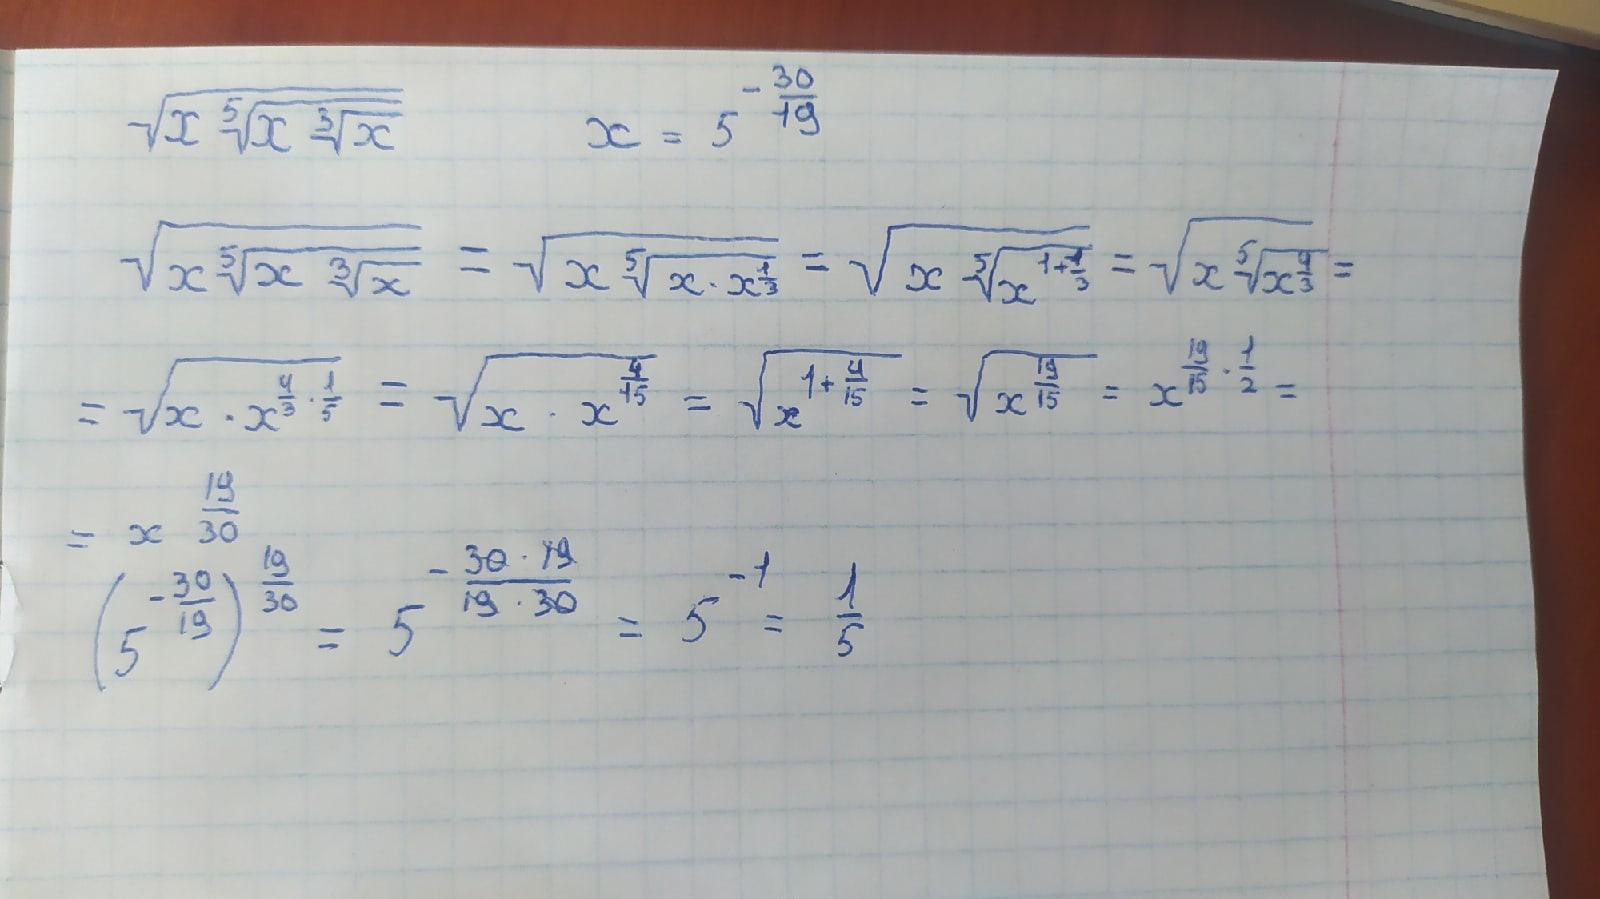 √(x ⁵√(x ³√x)) x = 5^(-30/19)
√(x ⁵√(x ³√x)) = √(x ⁵√(x · x^(1/3))) = √(x ⁵√(x^(1+1/3))) = √(x ⁵√(x^(4/3))) =
= √(x · x^(4/3 · 1/5)) = √(x · x^(4/15)) = √(x^(1+4/15)) = √(x^(19/15)) = x^(19/15 · 1/2) =
= x^(19/30)
(5^(-30/19))^(19/30) = 5^(-(30 · 19)/(19 · 30)) = 5^(-1) = 1/5